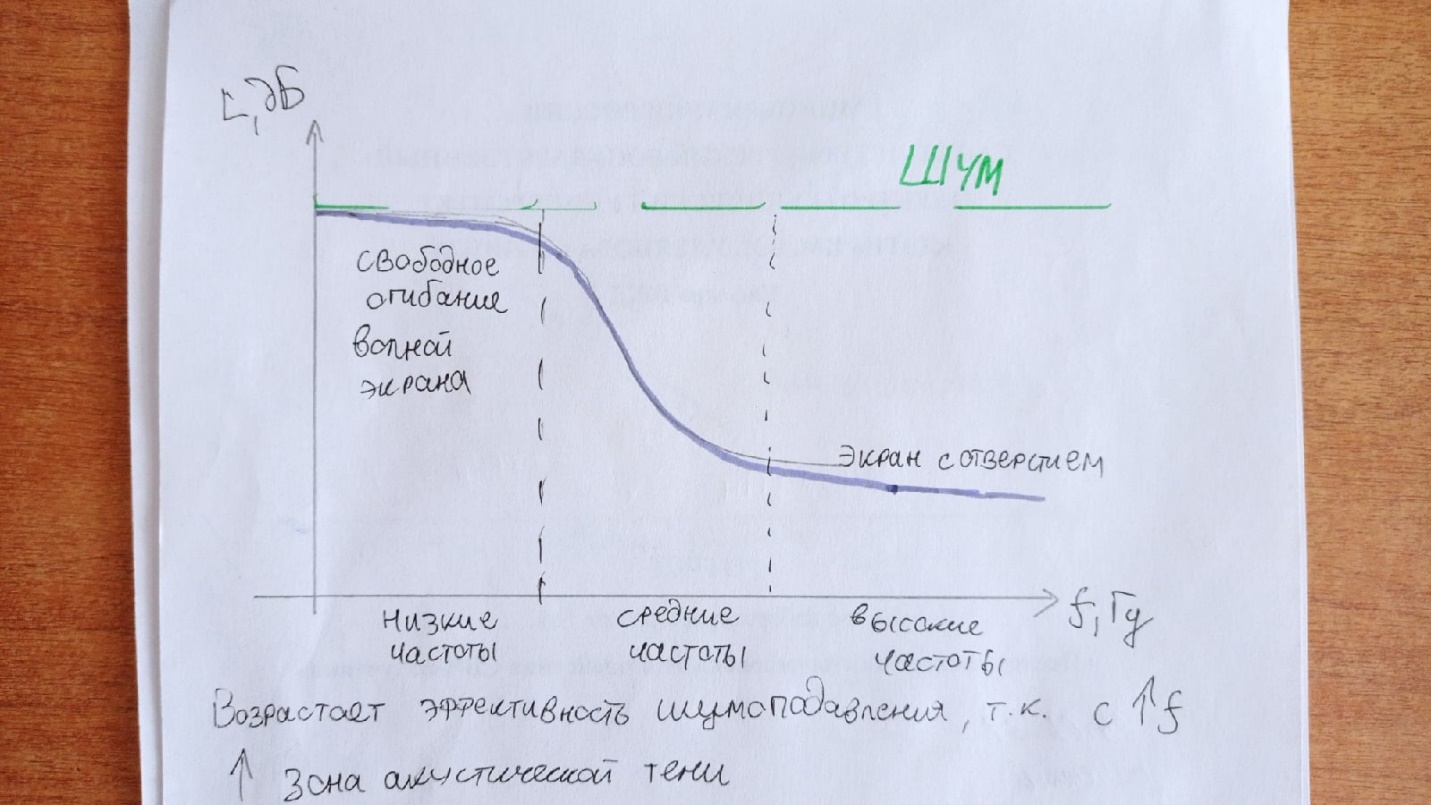 L, дБ
Шум
свободное
огибание
волной
экрана
Экран с отверстием
f, Гц
низкие
частоты
средние
частоты
высокие
частоты
Возрастает эффективность шумоподавления, т.к. с ↑ f
↑ Зона акустической тени